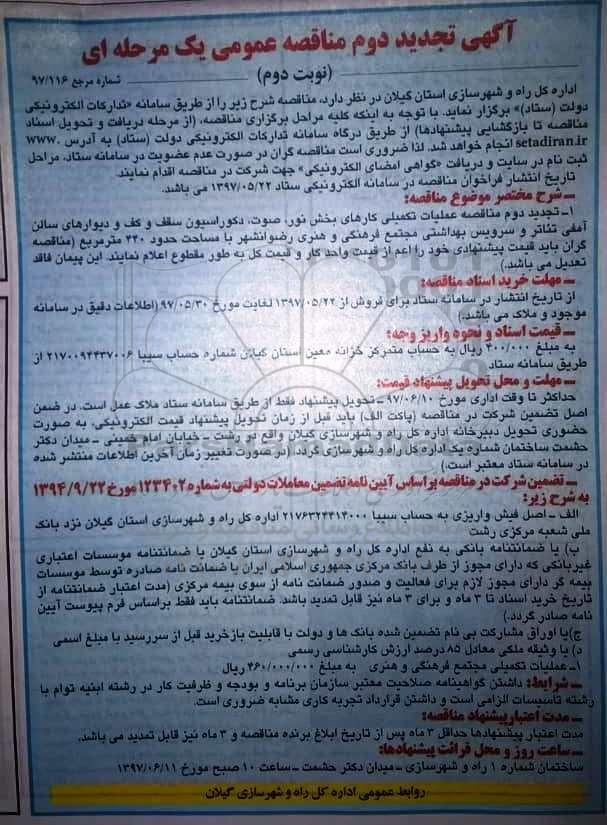 آگهی تجدید دوم مناقصه عمومی یک مرحله ای
(نوبت دوم)
شماره مرجع ۹۷/۱۱۶
اداره کل راه و شهرسازی استان گیلان در نظر دارد، مناقصه شرح زیر را از طریق سامانه «تدارکات الکترونیکی
دولت (ستاد)» برگزار نماید. با توجه به اینکه کلیه مراحل برگزاری مناقصه، (از مرحله دریافت و تحویل اسناد
مناقصه تا بازگشایی پیشنهادها) از طریق درگاه سامانه تدارکات الکترونیکی دولت (ستاد) به آدرس www.
setadiran.ir انجام خواهد شد. لذا ضروری است مناقصه گران در صورت عدم عضویت در سامانه ستاد، مراحل
ثبت نام در سایت و دریافت «گواهی امضای الکترونیکی» جهت شرکت در مناقصه اقدام نمایند.
تاریخ انتشار فراخوان مناقصه در سامانه الکترونیکی ستاد ۱۳۹۷/۰۵/۲۲ می باشد.
ــ شرح مختصر موضوع مناقصه:
۱ـ تجدید دوم مناقصه عملیات تکمیلی کارهای بخش نور، صوت، دکوراسیون سقف و کف و دیوارهای سالن
آمفی تئاتر و سرویس بهداشتی مجتمع فرهنگی و هنری رضوانشهر با مساحت حدود ۴۴۰ مترمربع (مناقصه
گران باید قیمت پیشنهادی خود را اعم از قیمت واحد کار و قیمت کل به طور مقطوع اعلام نمایند. این پیمان فاقد
تعدیل می باشد.)
ــ مهلت خرید اسناد مناقصه:
از تاریخ انتشار در سامانه ستاد برای فروش از ۱۳۹۷/۰۵/۲۲ لغایت مورخ ۹۷/۰۵/۳۰ (اطلاعات دقیق در سامانه
موجود و ملاک می باشد.)
ــ قیمت اسناد و نحوه واریز وجه:
به مبلغ ۳۰۰/۰۰۰ ریال به حساب متمرکز خزانه معین استان گیلان شماره حساب سیبا ۲۱۷۰۰۹۴۴۳۷۰۰۶ از
طریق سامانه ستاد
ــ مهلت و محل تحویل پیشنهاد قیمت:
حداکثر تا وقت اداری مورخ ۹۷/۰۶/۱۰ ــ تحویل پیشنهاد فقط از طریق سامانه ستاد ملاک عمل است. در ضمن
اصل تضمین شرکت در مناقصه (پاکت الف) باید قبل از زمان تحویل پیشنهاد قیمت الکترونیکی، به صورت
حضوری تحویل دبیرخانه اداره کل راه و شهرسازی گیلان واقع در رشت ــ خیابان امام خمینی ــ میدان دکتر
حشمت ساختمان شماره یک اداره کل راه و شهرسازی گردد. (در صورت تغییر زمان آخرین اطلاعات منتشر شده
در سامانه ستاد معتبر است.)
ــ تضمین شرکت در مناقصه براساس آیین نامه تضمین معاملات دولتی به شماره ۱۲۳۴۰۲ مورخ ۱۳۹۴/۹/۲۲
به شرح زیر:
الف ــ اصل فیش واریزی به حساب سیبا ۲۱۷۶۳۲۴۴۱۴۰۰۰ اداره کل راه و شهرسازی استان گیلان نزد بانک
ملی شعبه مرکزی رشت
ب) یا ضمانتنامه بانکی به نفع اداره کل راه و شهرسازی استان گیلان یا ضمانتنامه موسسات اعتباری
غیربانکی که دارای مجوز از طرف بانک مرکزی جمهوری اسلامی ایران یا ضمانت نامه صادره توسط موسسات
بیمه گر دارای مجوز لازم برای فعالیت و صدور ضمانت نامه از سوی بیمه مرکزی (مدت اعتبار ضمانتنامه از
تاریخ خرید اسناد تا ۳ ماه و برای ۳ ماه نیز قابل تمدید باشد. ضمانتنامه باید فقط براساس فرم پیوست آیین
نامه صادر گردد.)
ج) یا اوراق مشارکت بی نام تضمین شده بانک ها و دولت با قابلیت بازخرید قبل از سررسید با مبلغ اسمی
د) یا وثیقه ملکی معادل ۸۵ درصد ارزش کارشناسی رسمی
۱ـ عملیات تکمیلی مجتمع فرهنگی و هنری به مبلغ ۴۶۰/۰۰۰/۰۰۰ ریال
ــ شرایط: داشتن گواهینامه صلاحیت معتبر سازمان برنامه و بودجه و ظرفیت کار در رشته ابنیه توام با
رشته تاسیسات الزامی است و داشتن قرارداد تجربه کاری مشابه ضروری است.
ــ مدت اعتبار پیشنهاد مناقصه:
مدت اعتبار پیشنهادها حداقل ۳ ماه پس از تاریخ ابلاغ برنده مناقصه و ۳ ماه نیز قابل تمدید می باشد.
ــ ساعت روز و محل قرائت پیشنهادها:
ساختمان شماره ۱ راه و شهرسازی ــ میدان دکتر حشمت ــ ساعت ۱۰ صبح مورخ ۱۳۹۷/۰۶/۱۱
روابط عمومی اداره کل راه و شهرسازی گیلان